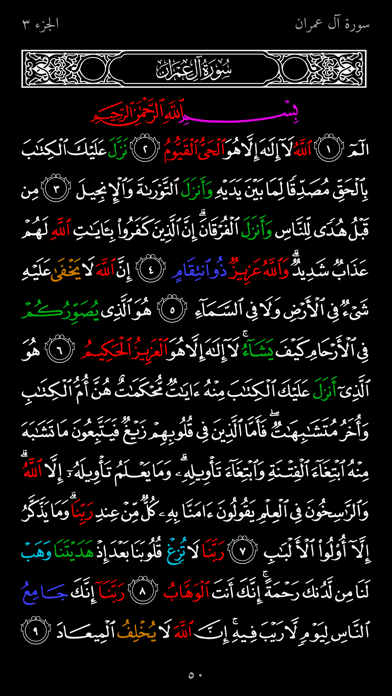 سورة آل عمران
الجزء ٣
سُورَةُ آلِ عِمْرَانَ
بِسْمِ ٱللَّهِ ٱلرَّحْمَٰنِ ٱلرَّحِيمِ
الٓمٓ ١ ٱللَّهُ لَآ إِلَٰهَ إِلَّا هُوَ ٱلْحَىُّ ٱلْقَيُّومُ ٢ نَزَّلَ عَلَيْكَ ٱلْكِتَٰبَ
بِٱلْحَقِّ مُصَدِّقًا لِّمَا بَيْنَ يَدَيْهِ وَأَنزَلَ ٱلتَّوْرَىٰةَ وَٱلْإِنجِيلَ ٣ مِن
قَبْلُ هُدًى لِّلنَّاسِ وَأَنزَلَ ٱلْفُرْقَانَ ۗ إِنَّ ٱلَّذِينَ كَفَرُوا۟ بِـَٔايَٰتِ ٱللَّهِ لَهُمْ
عَذَابٌ شَدِيدٌ ۗ وَٱللَّهُ عَزِيزٌ ذُو ٱنتِقَامٍ ٤ إِنَّ ٱللَّهَ لَا يَخْفَىٰ عَلَيْهِ
شَىْءٌ فِى ٱلْأَرْضِ وَلَا فِى ٱلسَّمَآءِ ٥ هُوَ ٱلَّذِى يُصَوِّرُكُمْ
فِى ٱلْأَرْحَامِ كَيْفَ يَشَآءُ ۚ لَآ إِلَٰهَ إِلَّا هُوَ ٱلْعَزِيزُ ٱلْحَكِيمُ ٦ هُوَ
ٱلَّذِىٓ أَنزَلَ عَلَيْكَ ٱلْكِتَٰبَ مِنْهُ ءَايَٰتٌ مُّحْكَمَٰتٌ هُنَّ أُمُّ ٱلْكِتَٰبِ
وَأُخَرُ مُتَشَٰبِهَٰتٌ ۖ فَأَمَّا ٱلَّذِينَ فِى قُلُوبِهِمْ زَيْغٌ فَيَتَّبِعُونَ مَا تَشَٰبَهَ
مِنْهُ ٱبْتِغَآءَ ٱلْفِتْنَةِ وَٱبْتِغَآءَ تَأْوِيلِهِۦ ۗ وَمَا يَعْلَمُ تَأْوِيلَهُۥٓ إِلَّا ٱللَّهُ ۗ
وَٱلرَّٰسِخُونَ فِى ٱلْعِلْمِ يَقُولُونَ ءَامَنَّا بِهِۦ كُلٌّ مِّنْ عِندِ رَبِّنَا ۗ وَمَا يَذَّكَّرُ
إِلَّآ أُو۟لُوا۟ ٱلْأَلْبَٰبِ ٧ رَبَّنَا لَا تُزِغْ قُلُوبَنَا بَعْدَ إِذْ هَدَيْتَنَا وَهَبْ
لَنَا مِن لَّدُنكَ رَحْمَةً ۚ إِنَّكَ أَنتَ ٱلْوَهَّابُ ٨ رَبَّنَآ إِنَّكَ جَامِعُ
ٱلنَّاسِ لِيَوْمٍ لَّا رَيْبَ فِيهِ ۚ إِنَّ ٱللَّهَ لَا يُخْلِفُ ٱلْمِيعَادَ ٩
٥٠